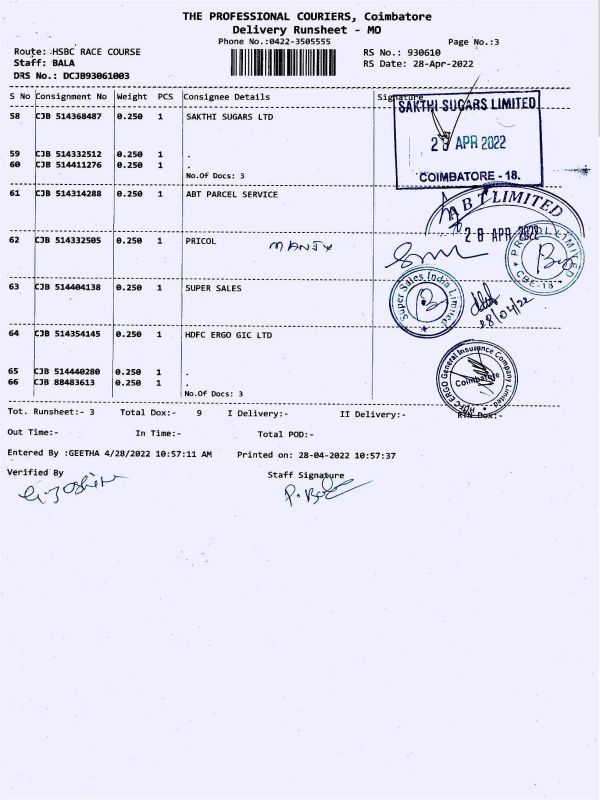 THE PROFESSIONAL COURIERS, Coimbatore
Delivery Runsheet - MO
Phone No.:0422-3505555 Page No.:3
Route: HSBC RACE COURSE RS No.: 930610
Staff: BALA RS Date: 28-Apr-2022
DRS No.: DCJB93061003
S No Consignment No Weight PCS Consignee Details Signature
58 CJB 514368487 0.250 1 SAKTHI SUGARS LTD
SAKTHI SUGARS LIMITED
28 APR 2022
COIMBATORE - 18.
59 CJB 514332512 0.250 1 .
60 CJB 514411276 0.250 1 .
No.Of Docs: 3
61 CJB 514314288 0.250 1 ABT PARCEL SERVICE
ABT LIMITED
28 APR 2022
62 CJB 514332505 0.250 1 PRICOL MANJU
PRICOL LIMITED
CBE-18
63 CJB 514404138 0.250 1 SUPER SALES
Super Sales India Limited
28/04/22
64 CJB 514354145 0.250 1 HDFC ERGO GIC LTD
HDFC ERGO General Insurance Company Limited
Coimbatore
65 CJB 514440280 0.250 1 .
66 CJB 88483613 0.250 1 .
No.Of Docs: 3
Tot. Runsheet:- 3 Total Dox:- 9 I Delivery:- II Delivery:- RTN Dox:-
Out Time:- In Time:- Total POD:-
Entered By :GEETHA 4/28/2022 10:57:11 AM Printed on: 28-04-2022 10:57:37
Verified By Staff Signature